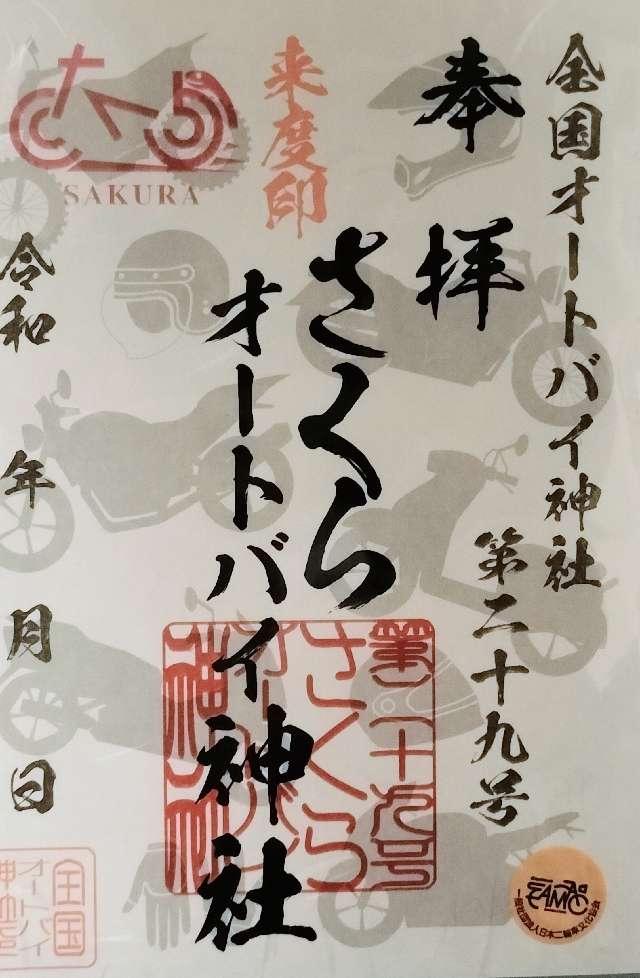 全国オートバイ神社
第二十九号
奉拝
さくら
オートバイ神社
来度印
さくら
SAKURA
令和 年 月 日
第二十九号
さくら
オートバイ
神社
全国
オートバイ
神社
一般社団法人日本二輪車文化協会